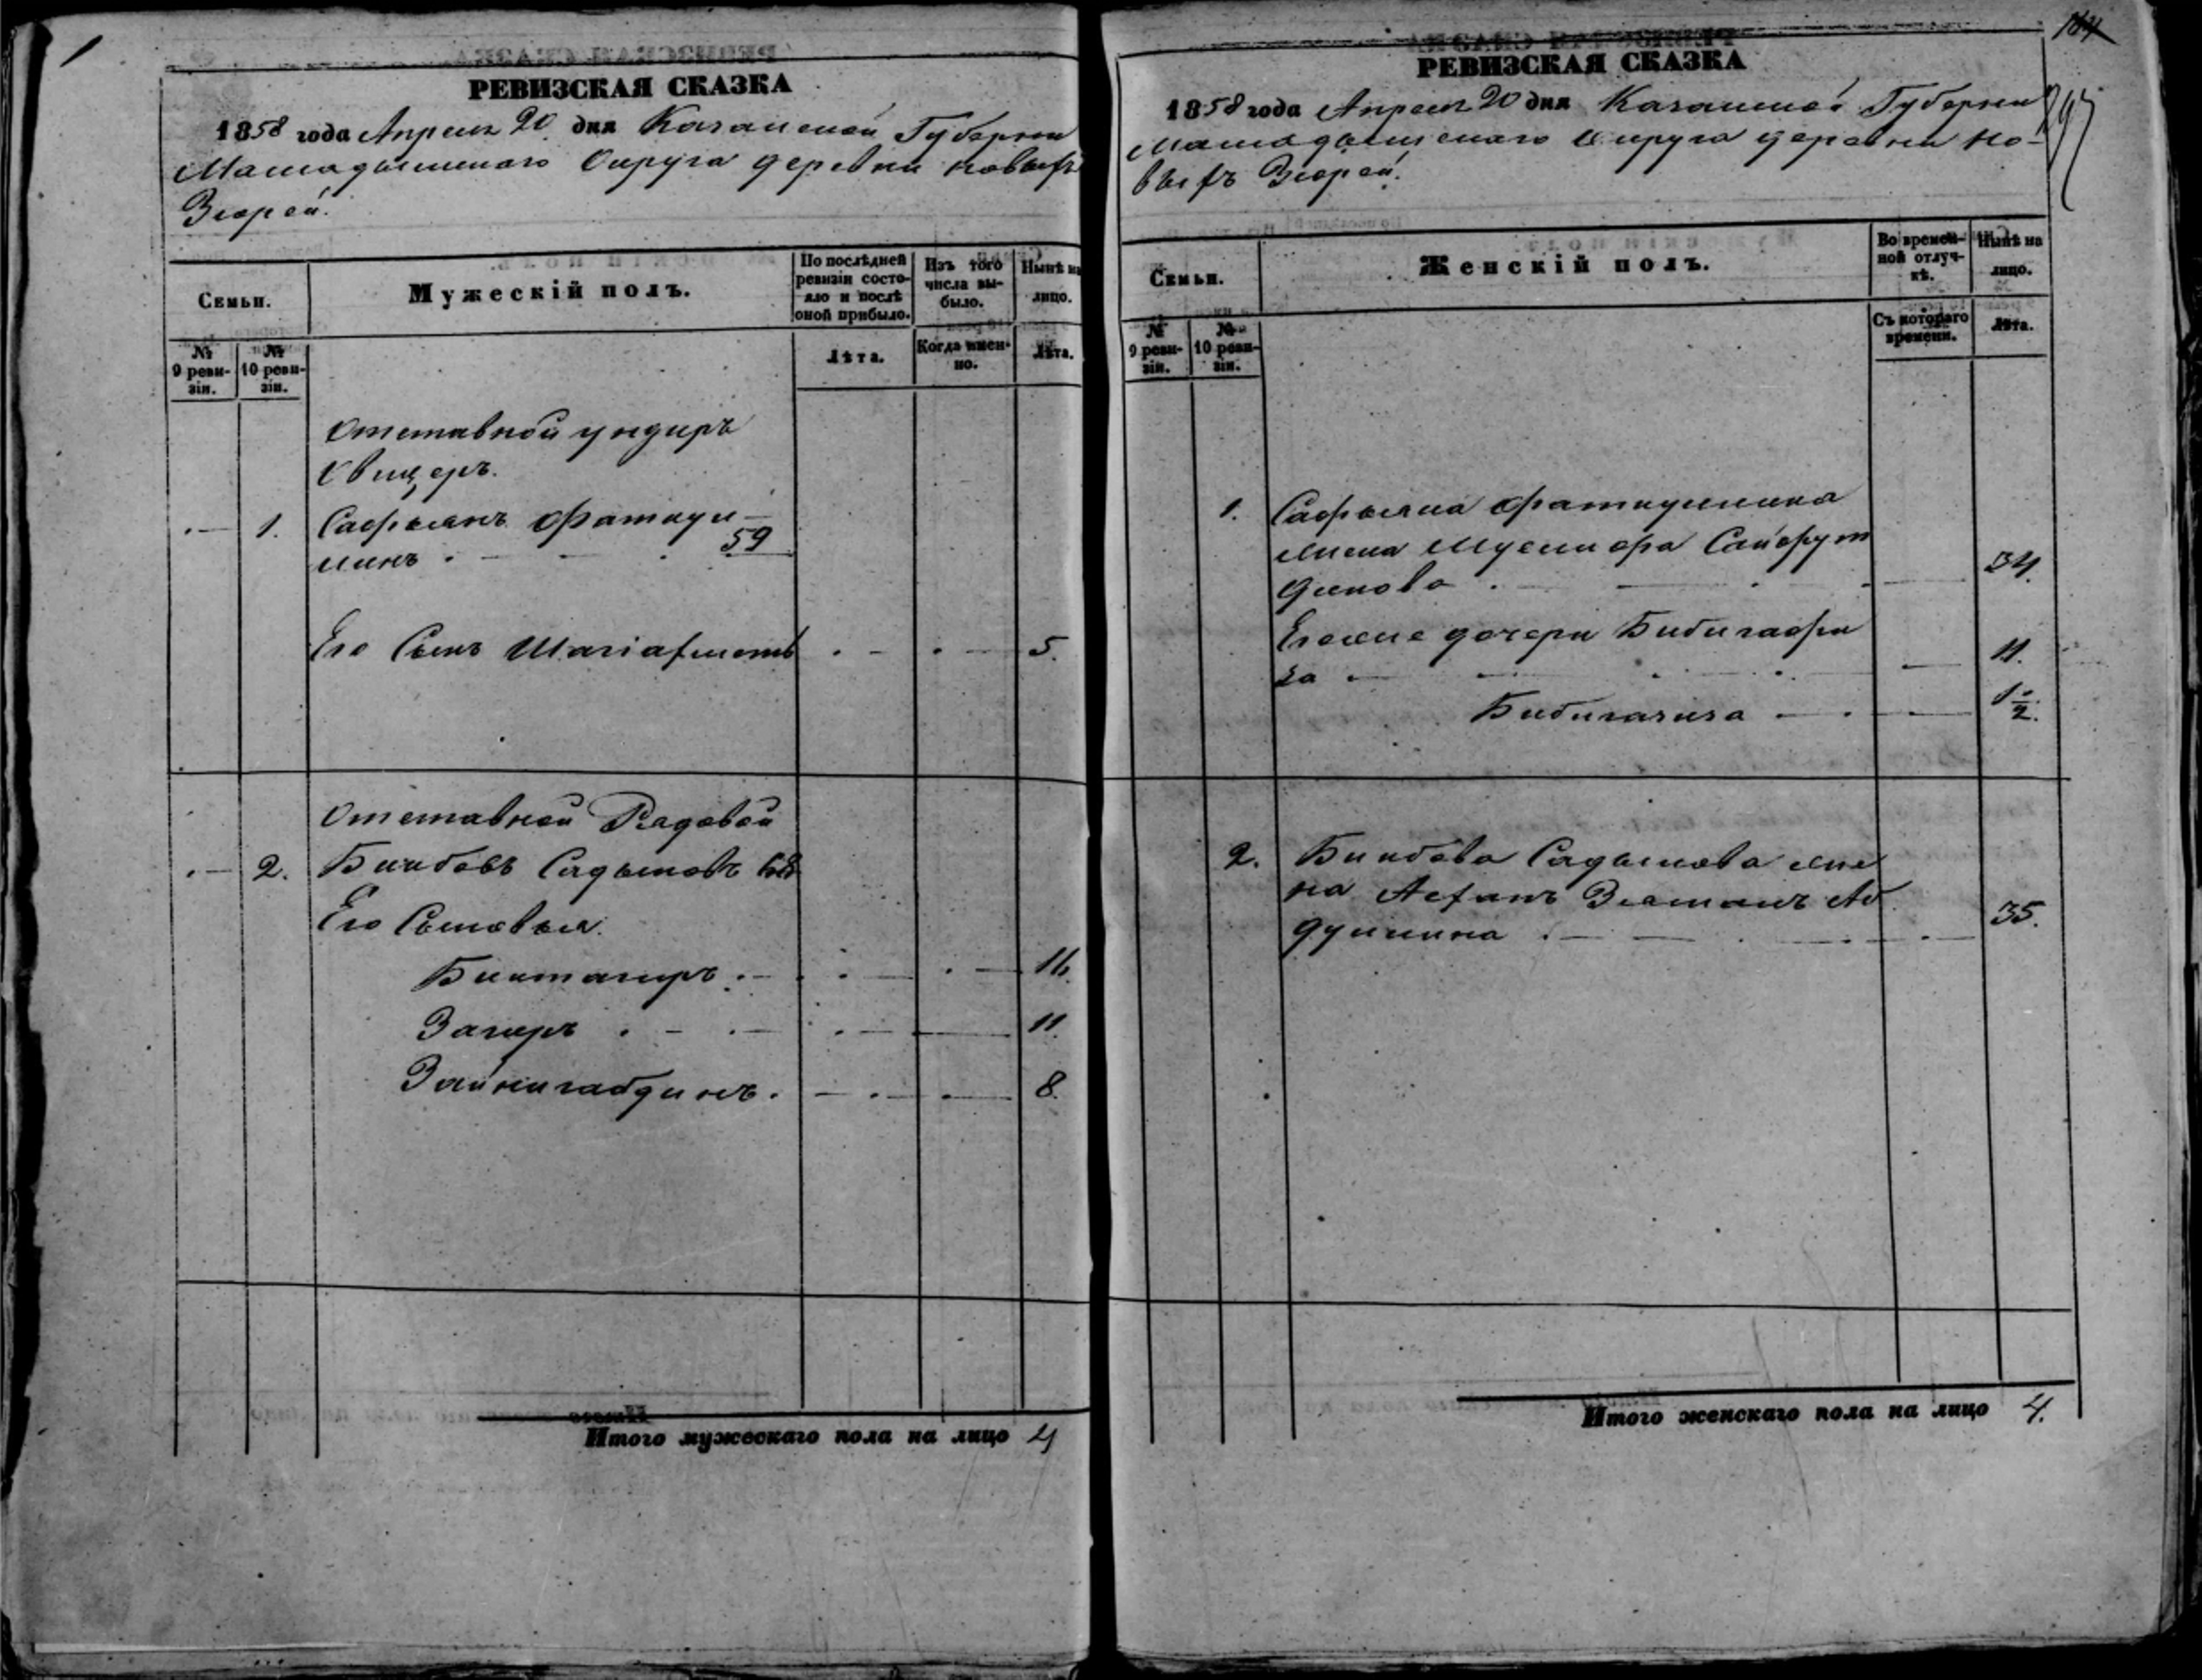 РЕВИЗСКАЯ СКАЗКА
1858 года Апреля 20 дня Казанской Губернии
Мамадышскаго Округа деревни Новыхъ
Зюрей.
Семьи.
Мужескій полъ.
По послѣдней ревизіи состояло и послѣ оной прибыло.
Изъ того числа выбыло.
Нынѣ на лицо.
№ 9 ревизіи.
№ 10 ревизіи.
Лѣта.
Когда именно.
Лѣта.
Отставной ундиръ
Овицеръ.
1. Сафьянъ Фаткул-
линъ 59
Его Сынъ Шагіахметъ 5.
Отставной Рядовой
2. Биккбовъ Садыковъ
Его Сыновья
Биктагиръ 16.
Загиръ 11.
Зайнигабдинъ 8.
Итого мужескаго пола на лицо 4
РЕВИЗСКАЯ СКАЗКА
1858 года Апреля 20 дня Казанской Губерніи
Мамадышскаго Округа деревни Но-
выхъ Зюрей.
Семьи.
Женскій полъ.
Во временной отлучкѣ.
Нынѣ на лицо.
№ 9 ревизіи.
№ 10 ревизіи.
Съ котораго времени.
Лѣта.
1. Сафьяна Фаткуллина
жена Сайфут
динова 34.
Его же дочери Бибигафи
за 11.
Бибигазиза 1/2.
2. Садыкова же
на Аб
дуллина 35.
Итого женскаго пола на лицо 4.